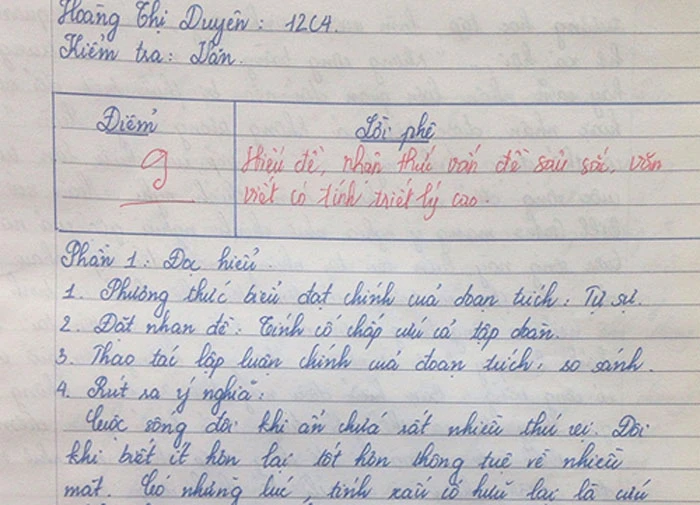 Hoàng Thị Duyên : 12C4.
Kiểm tra : Văn.
Điểm
Lời phê
9
Hiểu đề, nhận thức vấn đề sâu sắc, văn
viết có tính triết lý cao.
Phần 1 : Đọc hiểu.
1. Phương thức biểu đạt chính của đoạn trích : Tự sự.
2. Đặt nhan đề : Tính cố chấp cứu cả tập đoàn.
3. Thao tác lập luận chính của đoạn trích : so sánh.
4. Rút ra ý nghĩa :
Cuộc sống đôi khi ẩn chứa rất nhiều thú vị. Đôi
khi biết ít hơn lại tốt hơn thông tuệ về nhiều
mặt. Có những lúc, tính xấu cố hữu lại là cứu